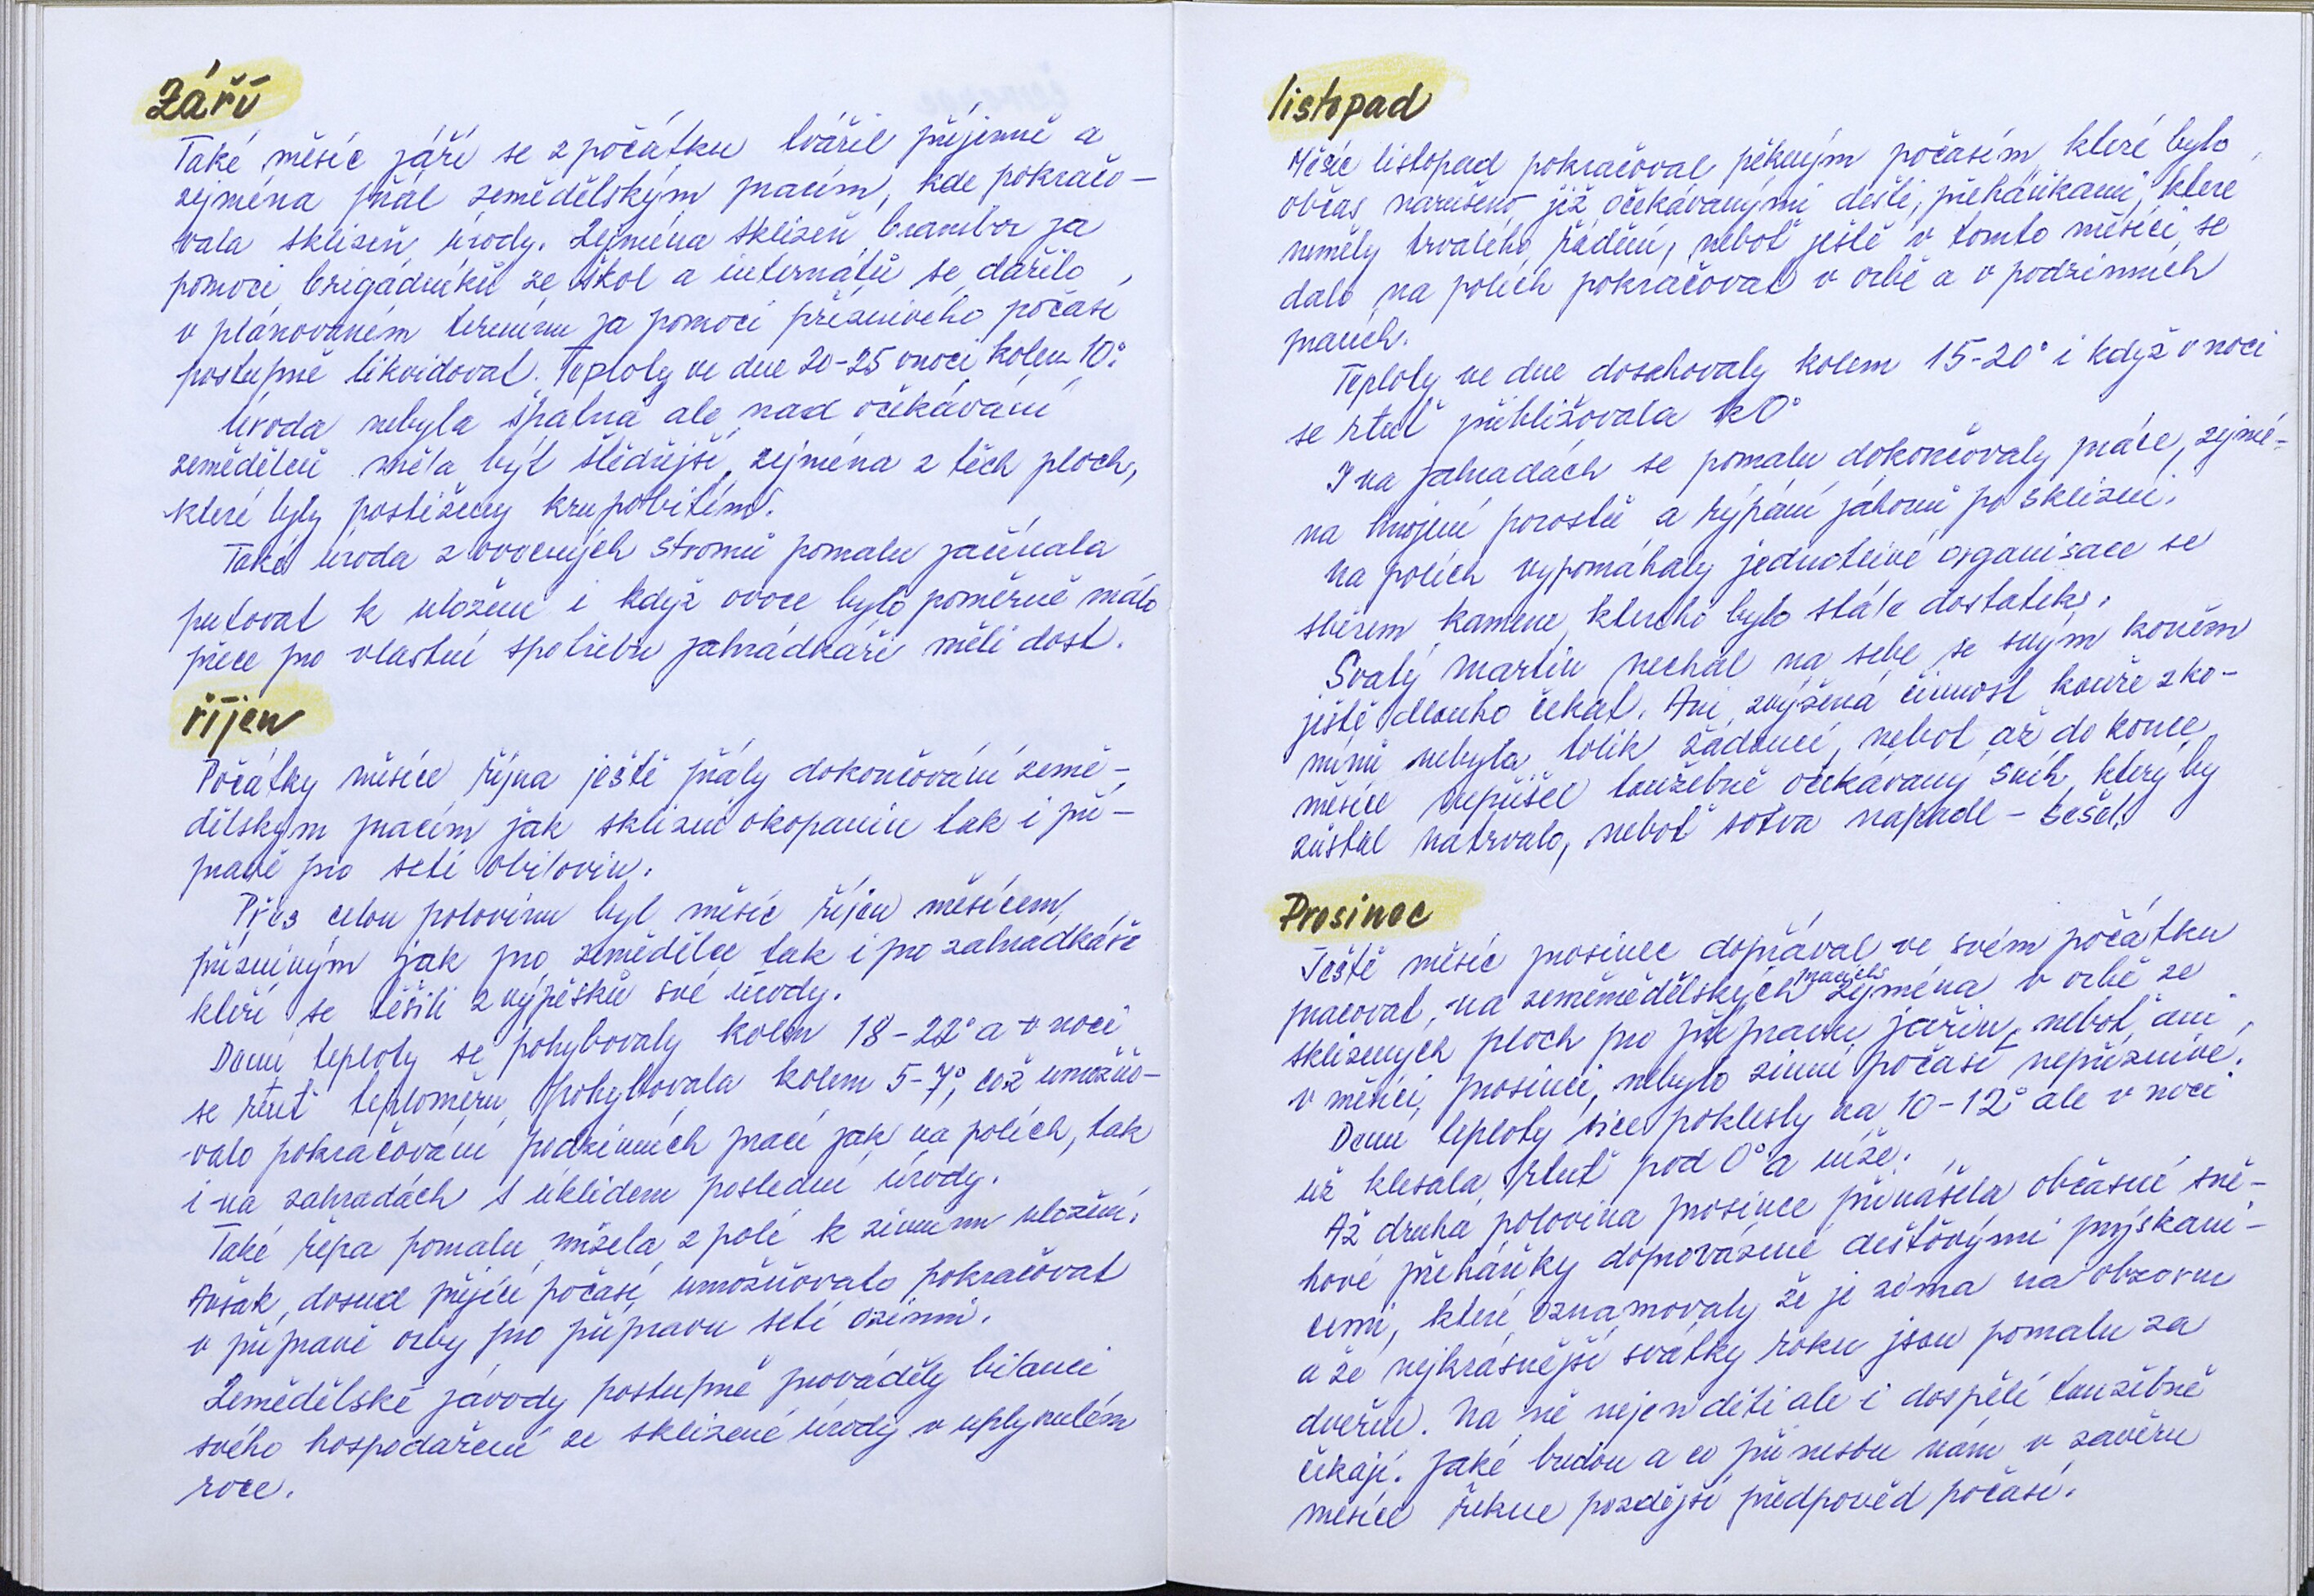 Září
Také měsíc září se zpočátku tvářil příjemně a
zejména přál zemědělským pracím, kde pokračo-
vala sklizeň úrody. Zejména sklizeň brambor za
pomoci brigádníků ze škol a internátů se dařilo
v plánovaném termínu za pomoci příznivého počasí
postupně likvidovat. Teploty ve dne 20-25 v noci kolem 10°.
Úroda nebyla špatná ale nad očekávání
zemědělců měla být štědřejší, zejména z těch ploch,
které byly postiženy krupobitím.
Také úroda z ovocných stromů pomalu začínala
putovat k uložení i když ovoce bylo poměrně málo
přece pro vlastní spotřebu zahrádkáři měli dost.
říjen
Počátky měsíce října ještě přály dokončování země-
dělským pracím jak sklizni okopanin tak i pří-
pravě pro setí obilovin.
Přes celou polovinu byl měsíc říjen měsícem
příznivým jak pro zemědělce tak i pro zahradkáře
kteří se těšili z výpěsků své úrody.
Denní teploty se pohybovaly kolem 18-22° a v noci
se rtuť teploměru pohybovala kolem 5-7°, což umožňo-
valo pokračování podzimních prací jak na polích, tak
i na zahradách s úklidem poslední úrody.
Také řepa pomalu mizela z polí k zimnímu uložení.
Avšak, dosud přející počasí umožňovalo pokračovat
v přípravě orby pro přípravu setí ozimů.
Zemědělské závody postupně prováděly bilanci
svého hospodaření ze sklizené úrody v uplynulém
roce.
listopad
Měsíc listopad pokračoval pěkným počasím, které bylo
občas narušeno již očekávanými dešti, přeháňkami, které
neměly trvalého řádění, neboť ještě v tomto měsíci se
dalo na polích pokračovat v orbě a v podzimních
pracích.
Teploty ve dne dosahovaly kolem 15-20° i když v noci
se rtuť přibližovala k 0°
I na zahradách se pomalu dokončovaly práce, zejmé-
na hnojení porostů a rýpání záhonů po sklizni.
Na polích vypomáhaly jednotlivé organisace se
sběrem kamene, kterého bylo stále dostatek.
Svatý Martin nechal na sebe se svým koněm
ještě dlouho čekat. Ani zvýšená činnost kouře z ko-
mínů nebyla tolik žádoucí, nebot až do konce
měsíce nepřišel toužebně očekávaný sníh, který by
zůstal natrvalo, neboť sotva napadl - sešel.
Prosinec
Ještě měsíc prosinec dopřával ve svém počátku
pracovat, na zeměmědělských pracích zejména v orbě ze
sklizených ploch pro přípravu jařin, neboť ani
v měsíci prosinci, nebylo zimní počasí nepříznivé.
Denní teploty sice poklesly na 10-12° ale v noci
už klesala rtuť pod 0° a níže.
Až druhá polovina prosince přinášela občasné sně-
hové přeháňky doprovázené dešťovými prýskani-
cemi, které oznamovaly že je zima na obzoru
a že nejkrásnější svátky roku jsou pomalu za
dveřmi. Na ně nejen děti ale i dospělí toužebně
čekají. Jaké budou a co přinesou nám v závěru
měsíce řekne pozdější předpověd počasí.